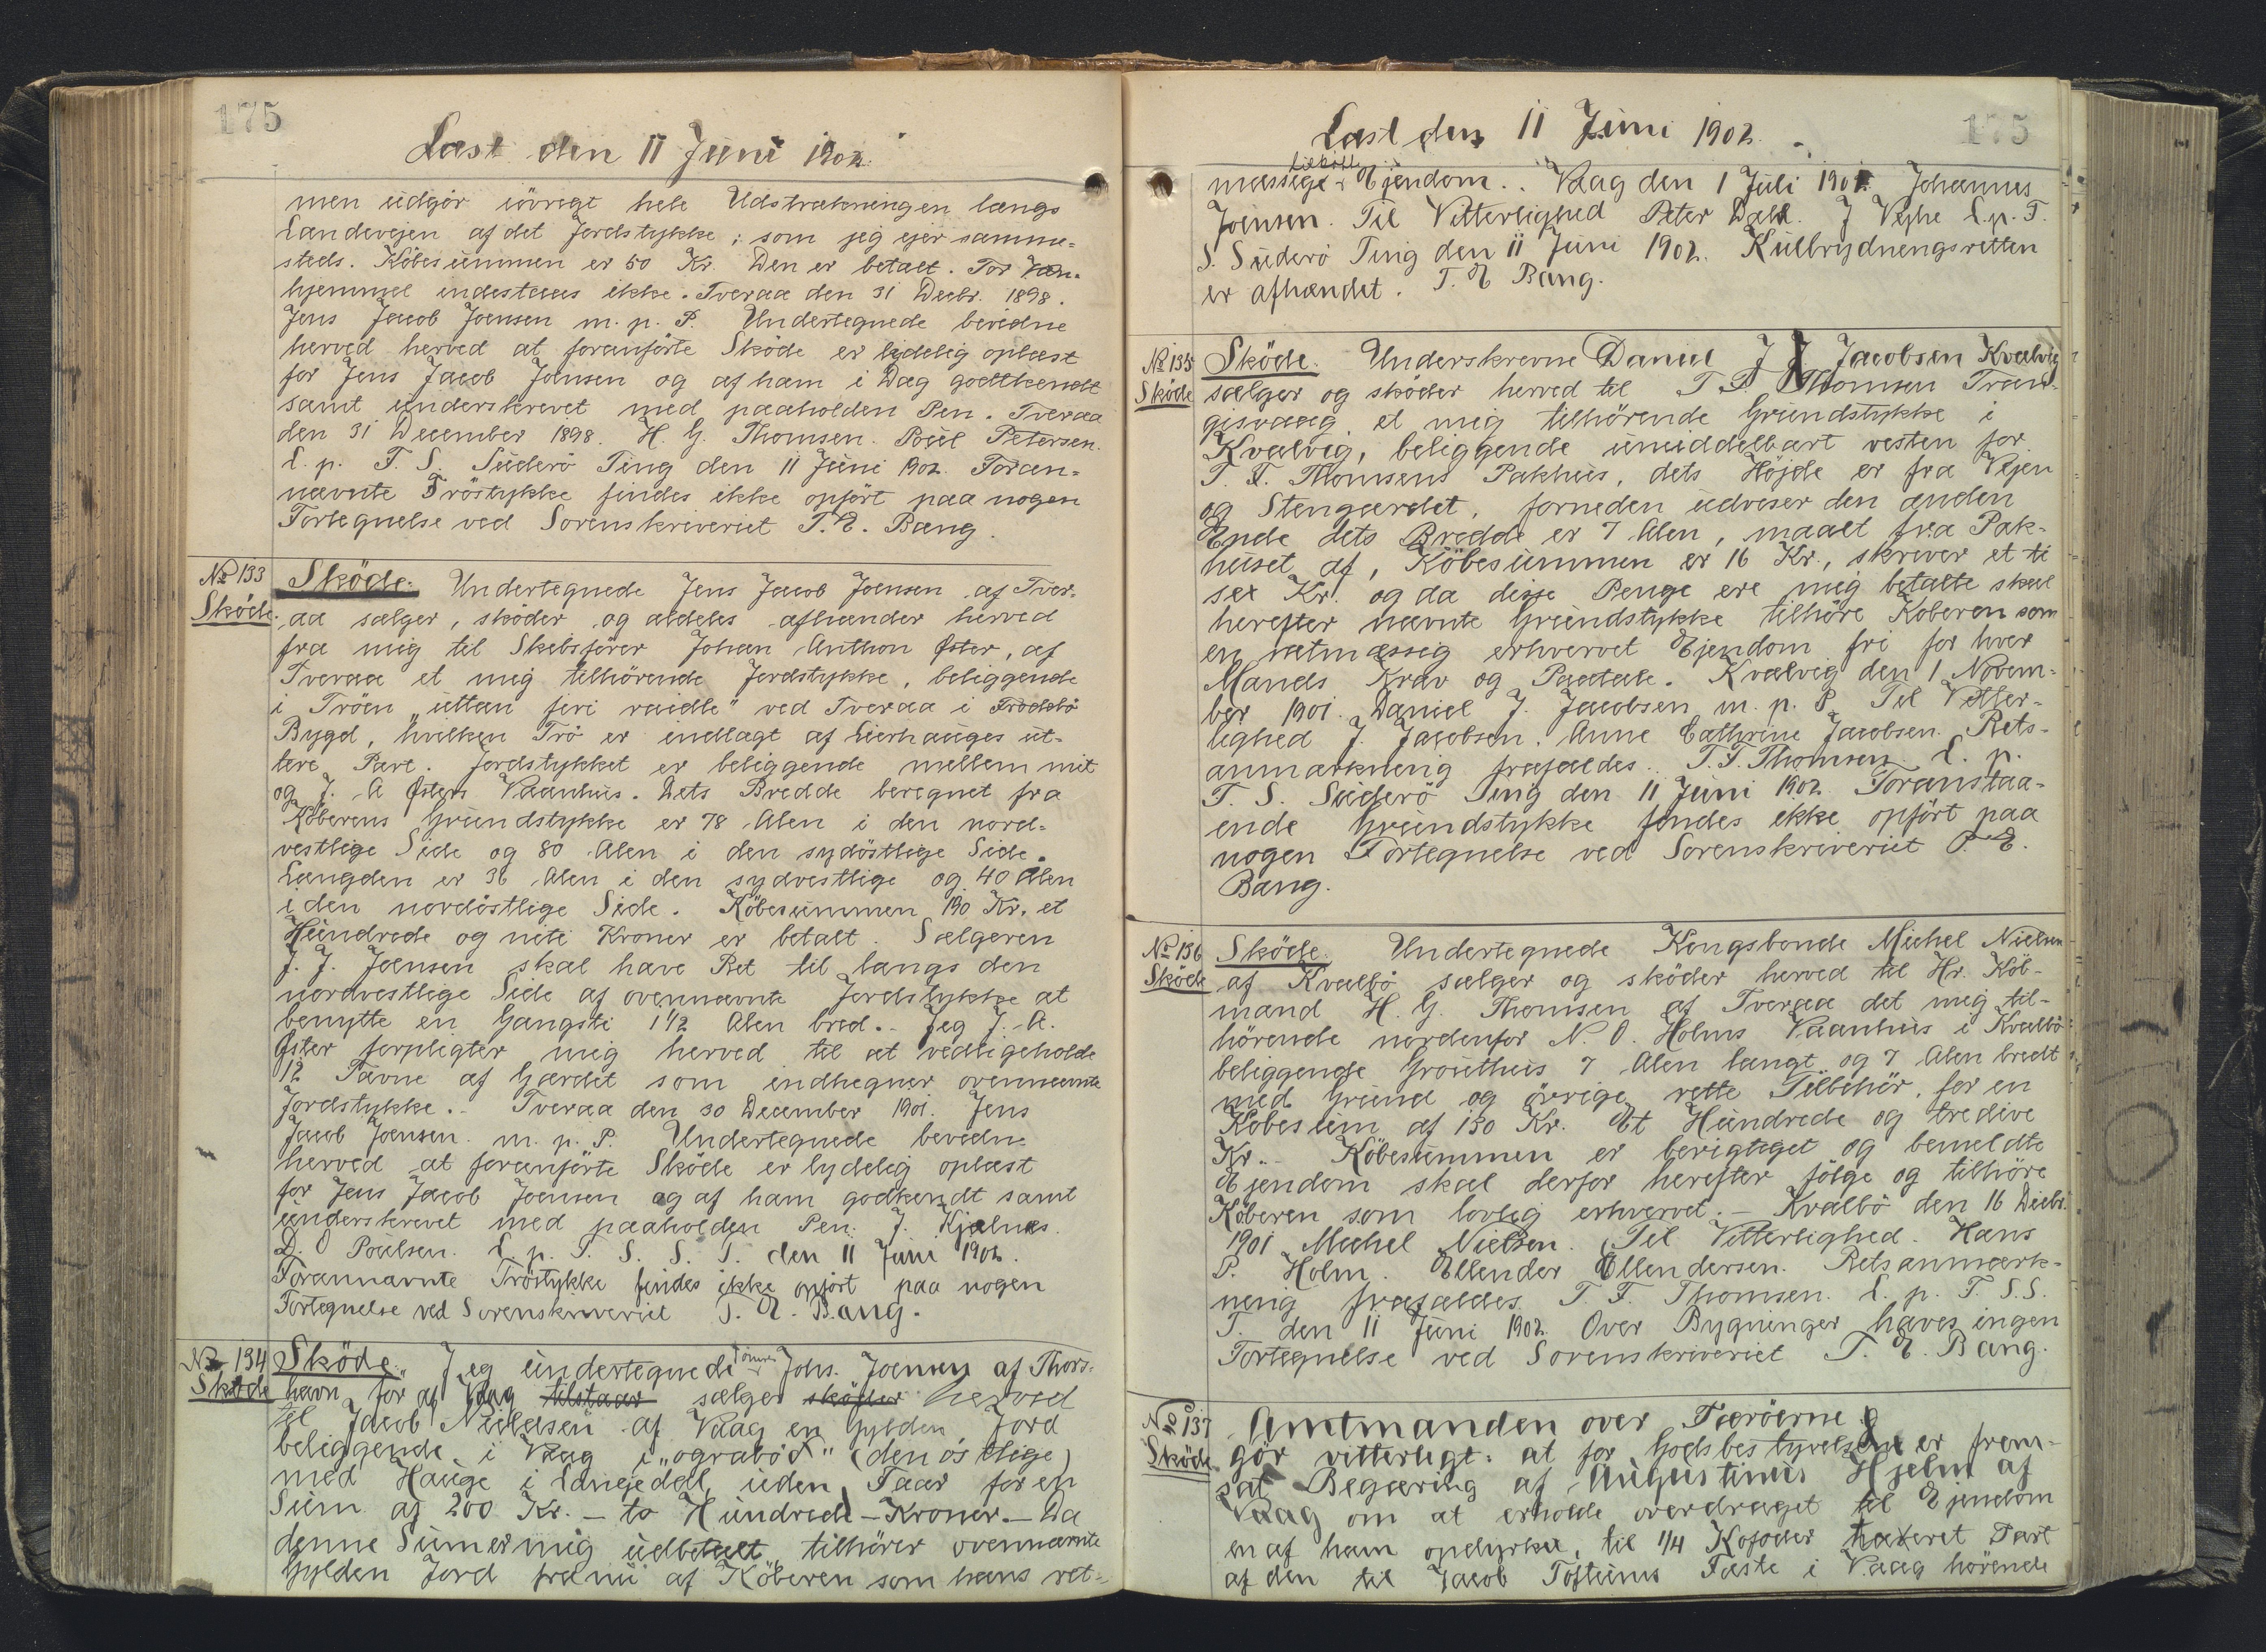 175
Læst den 11 Juni 1902.
men udgör iövrigt hele Udstrækningen langs
Landevejen af det Jordstykke; som jeg ejer samme-
steds. Köbesummen er 50 Kr. Den er betalt. For Van-
hjemmel indestaaes ikke. Tveraa den 31 Decbr. 1898.
Jens Jacob Joensen m. p. P. Undertegnede bevidne
herved herved at foranförte Sköde er lydelig oplæst
for Jens Jacob Joensen og af ham i Dag godtkendt
samt underskrevet med paaholden Pen. Tveraa
den 31 December 1898. H. G. Thomsen. Poul Petersen.
L. p. F. S. Suderö Ting den 11 Juni 1902. Foran-
nævnte Tröstykke findes ikke opfört paa nogen
Fortegnelse ved Sorenskriveriet T. E. Bang.
No 133
Sköde.
Sköde. Undertegnede Jens Jacob Joensen af Tver-
aa sælger, sköder og aldeles afhænder herved
fra mig til Skibsförer Johan Anthon Öster, af
Tveraa et mig tilhörende Jordstykke, beliggende
i Tröen "uttan firi raidle" ved Tveraa i Frodebö
Bygd, hvilken Trö er indlagt af Lierhauges ut-
tere Part. Jordstykket er beliggende mellem mit
og J. A Østers Vaanhus. Dets Bredde beregnet fra
Köberens Grundstykke er 78 Alen i den nord-
vestlige Side og 80 Alen i den sydöstlige Side.
Længden er 36 Alen i den sydvestlige og 40 Alen
i den nordöstlige Side. Köbesummen 190 Kr. et
Hundrede og niti Kroner er betalt. Sælgeren
J. J. Joensen skal have Ret til langs den
nordvestlige Side af ovennævnte Jordstykke at
benytte en Gangsti 1 1/2 Alen bred. - Jeg J. A.
Öster forpligter mig herved til at vedligeholde
12 Favne af Gærdet som indhegner ovennævnte
Jordstykke. - Tveraa den 30 December 1901. Jens
Jacob Joensen. m. p. P. Undertegnede bevidne
herved at foranförte Sköde er lydelig oplæst
for Jens Jacob Joensen og af ham godkendt samt
underskrevet med paaholden Pen. J. Kjælnæs.
D. O Poulsen. L. p. F. S. S. T. den 11 Juni 1902.
Forannævnte Tröstykke findes ikke opfört paa nogen
Fortegnelse ved Sorenskriveriet T. E. Bang.
No 134
Sköde
Sköde. Jeg undertegnede Johs. Joensen af Thors-
havn för af Vaag tilstaar sælger sköder herved
til Jacob Nielasen af Vaag en Gylden Jord
beliggende i Vaag i "ograböd" (den östlige)
med Hauge i Langedal uden Faar for en
Sum af 200 Kr. - to Hundrede - Kroner. - Da
denne Sum er mig udbetalt tilhörer ovennævnte
Gylden Jord fra nu af Köberen som hans ret-
Læst den 11 Juni 1902.
175
mæssige Ejendom.. Vaag den 1 Juli 1901. Johannes
Joensen. Til Vitterlighed Peter Dahl. J Vejhe L. p. F.
S. Suderö Ting den 11 Juni 1902. Kulbrydningsretten
er afhændet. T. E Bang.
No 135
Sköde
Sköde. Underskrevne Daniel J J Jacobsen Kvalvig
sælger og sköder herved til T. F. Thomsen Tran-
gisvaag, et mig tilhörende Grundstykke i
Kvalvig, beliggende umiddelbart vesten for
T. F. Thomsens Pakhus, dets Höjde er fra Vejen
og Stengærdet, forneden udviser den anden
Ende dets Bredde er 7 Alen, maalt fra Pak-
huset af, Köbesummen er 16 Kr., skriver et ti
sex Kr. og da disse Penge ere mig betalte skal
herefter nævnte Grundstykke tilhöre Köberen som
en retmæssig erhvervet Ejendom fri for hver
Mands Krav og Paatale. Kvalvig den 1 Novem-
ber 1901. Daniel J. Jacobsen m. p. P. Til Vitter-
lighed J. Jacobsen. Anne Cathrine Jacobsen. Rets-
anmærkning frafaldes. T. F. Thomsen L. p.
F. S. Suderö Ting den 11 Juni 1902 Foranstaa-
ende Grundstykke findes ikke opfört paa
nogen Fortegnelse ved Sorenskriveriet T. E.
Bang.
No 136
Sköde
Sköde. Undertegnede Kongsbonde Michel Nielsen
af Kvalbö sælger og sköder herved til Hr. Köb-
mand H. G. Thomsen af Tveraa det mig til-
hörende nordenfor N. O. Holms Vaanhus i Kvalbö
beliggende Grouthus 7 Alen langt og 7 Alen bredt
med Grund og övrige rette Tilbehör, for en
Köbesum af 130 Kr. Et Hundrede og tredive
Kr. - Köbesummen er berigtiget og bemeldte
Ejendom skal derfor herefter fölge og tilhöre
Köberen som lovlig erhvervet. - Kvalbö den 16 Decbr.
1901 Michel Nielsen. Til Vitterlighed. Hans
P. Holm. Ellender Ellendersen. Retsanmærk-
ning frafaldes. T. F. Thomsen. L. p. F. S. S.
T. den 11 Juni 1902. Over Bygninger haves ingen
Fortegnelse ved Sorenskriveriet T. E. Bang.
No 137
Sköde
Amtmanden over Færöerne
gör vitterligt: at for Godsbestyrelsen er frem-
sat Begæring af Augustinus Hjelm af
Vaag om at erholde overdraget til Ejendom
en af ham opdyrket, til 1/4 Kofoder taxeret Part
af den til Jacob Toftums Fæste i Vaag hörende